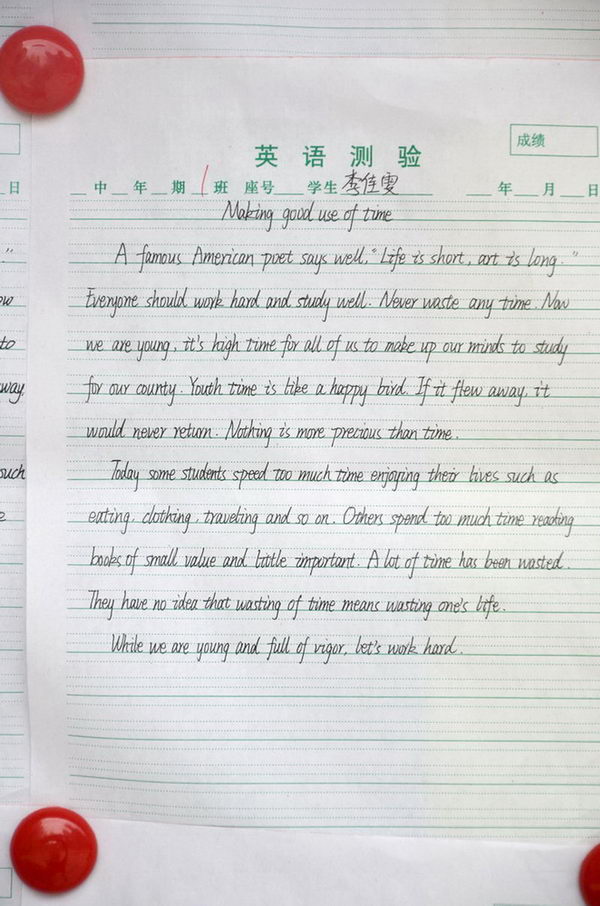 英语测验
成绩
日
中 年 期 1 班 座号 学生 李佳雯 年 月 日
Making good use of time
A famous American poet says well, "Life is short, art is long."
Everyone should work hard and study well. Never waste any time. Now
we are young, it's high time for all of us to make up our minds to study
for our county. Youth time is like a happy bird. If it flew away, it
would never return. Nothing is more precious than time.
Today some students speed too much time enjoying their lives such as
eating, clothing, traveling and so on. Others spend too much time reading
books of small value and little important. A lot of time has been wasted.
They have no idea that wasting of time means wasting one's life.
While we are young and full of vigor, let's work hard.
to
way
such